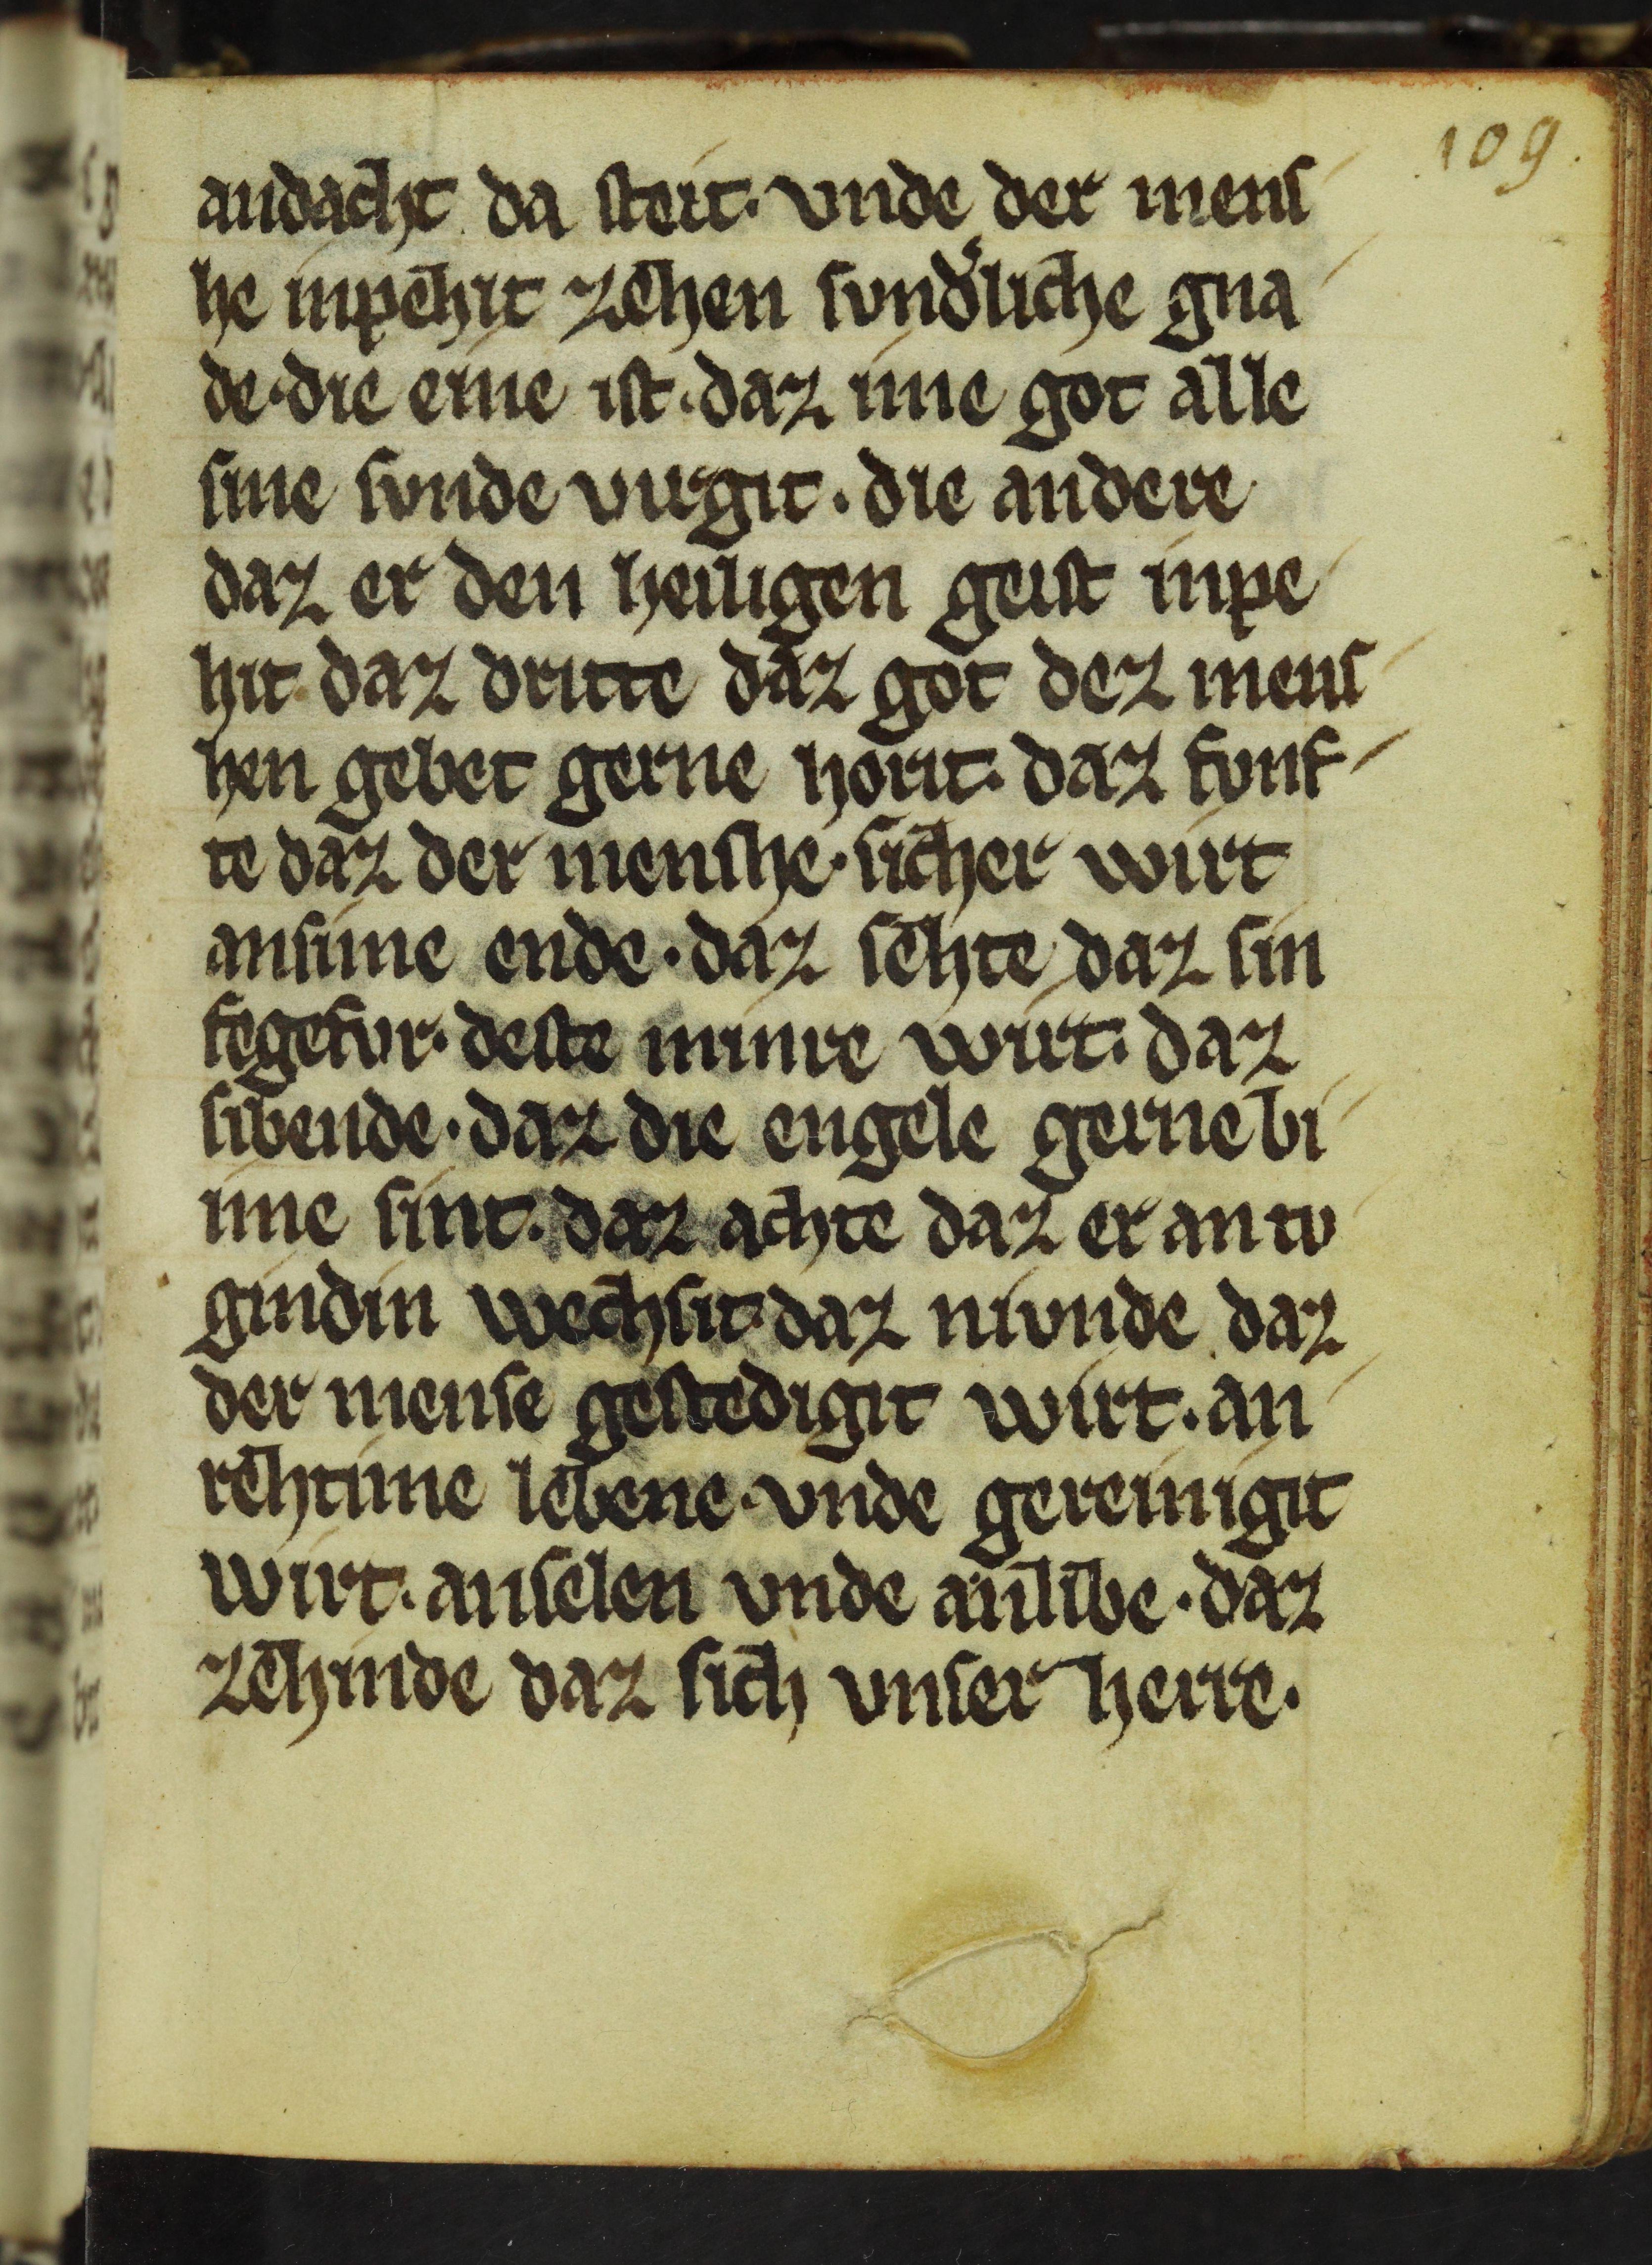 109.
andacht da steit. vnde der mens
he inpehit zehen sundͤliche gna
de. die eine ist. daz ime got alle
sine sunde uirgit. die andere
daz er den heiligen geist inpe
hit. daz dritte daz got dez mens
hen gebet gerne horit. daz funf
te daz der menshe. sicher wirt
ansime ende. daz sehte daz sin
fegefvr. deste minre wirt. daz
sibende. daz die engele gerne bi
ime sint. daz achte daz er an tv
gindin wechsit. daz nivnde daz
der mense gestedigit wirt. an
rehtime lebene. vnde gereinigit
wirt. anselen vnde anlibe. daz
zehinde daz sich vnser herre.